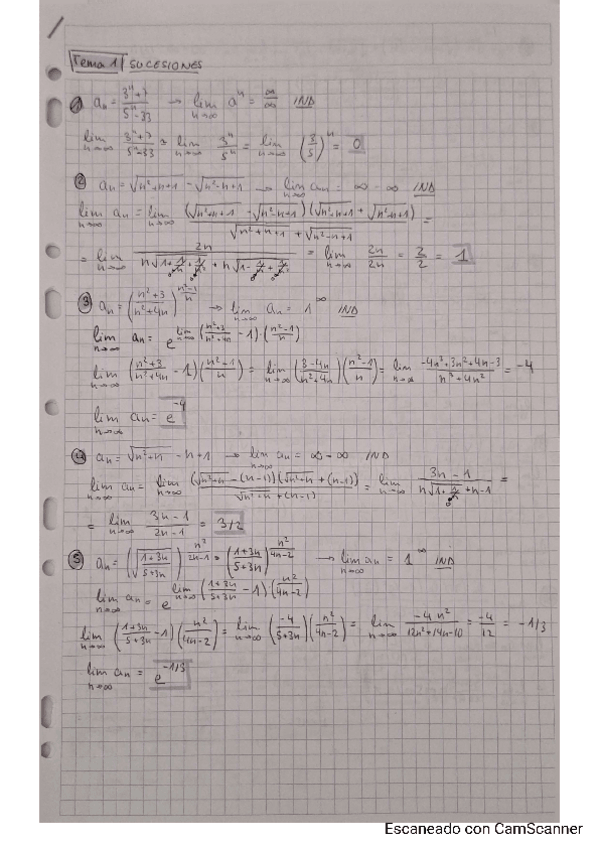 Tema 1 SUCESIONES
① aₙ = (3ⁿ+7)/(5ⁿ-33) → lim n→∞ aⁿ = ∞/∞ IND
lim n→∞ (3ⁿ+7)/(5ⁿ-33) = lim n→∞ 3ⁿ/5ⁿ = lim n→∞ (3/5)ⁿ = 0
② aₙ = √(n²+n+1) - √(n²-n+1) → lim n→∞ aₙ = ∞ - ∞ IND
lim n→∞ aₙ = lim n→∞ (√(n²+n+1) - √(n²-n+1))(√(n²+n+1) + √(n²-n+1)) / (√(n²+n+1) + √(n²-n+1)) =
= lim n→∞ 2n / (n√(1+1/n+1/n²) + n√(1-1/n+1/n²)) = lim n→∞ 2n/2n = 2/2 = 1
③ aₙ = ((n²+3)/(n²+4n))^((n²-1)/n) → lim n→∞ aₙ = 1^∞ IND
lim n→∞ aₙ = e^(lim n→∞ ((n²+3)/(n²+4n) - 1)·((n²-1)/n))
lim n→∞ ((n²+3)/(n²+4n) - 1)((n²+1)/n) = lim n→∞ ((3-4n)/(n²+4n))((n²-1)/n) = lim n→∞ (-4n³+3n²+4n-3)/(n³+4n²) = -4
lim n→∞ aₙ = e^-4
④ aₙ = √(n²+n) - n+1 → lim n→∞ aₙ = ∞ - ∞ IND
lim n→∞ aₙ = lim n→∞ (√(n²+n) - (n-1))(√(n²+n) + (n-1)) / (√(n²+n) + (n-1)) = lim n→∞ (3n-1)/(n√(1+1/n) + n-1) =
= lim n→∞ (3n-1)/(2n-1) = 3/2
⑤ aₙ = (√((1+3n)/(5+3n)))^(n²/(2n-1)) = ((1+3n)/(5+3n))^(n²/(4n-2)) → lim n→∞ aₙ = 1^∞ IND
lim n→∞ aₙ = e^(lim n→∞ ((1+3n)/(5+3n) - 1)·(n²/(4n-2)))
lim n→∞ ((1+3n)/(5+3n) - 1)(n²/(4n-2)) = lim n→∞ (-4/(5+3n))(n²/(4n-2)) = lim n→∞ -4n²/(12n²+14n-10) = -4/12 = -1/3
lim n→∞ aₙ = e^-1/3
Escaneado con CamScanner